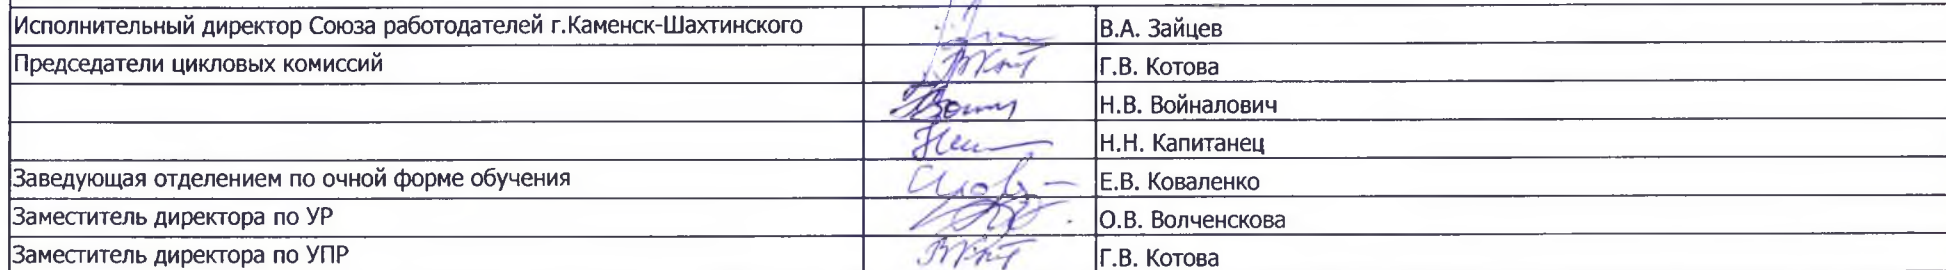 Исполнительный директор Союза работодателей г.Каменск-Шахтинского В.А. Зайцев
Председатели цикловых комиссий Г.В. Котова
Н.В. Войналович
Н.Н. Капитанец
Заведующая отделением по очной форме обучения Е.В. Коваленко
Заместитель директора по УР О.В. Волченскова
Заместитель директора по УПР Г.В. Котова